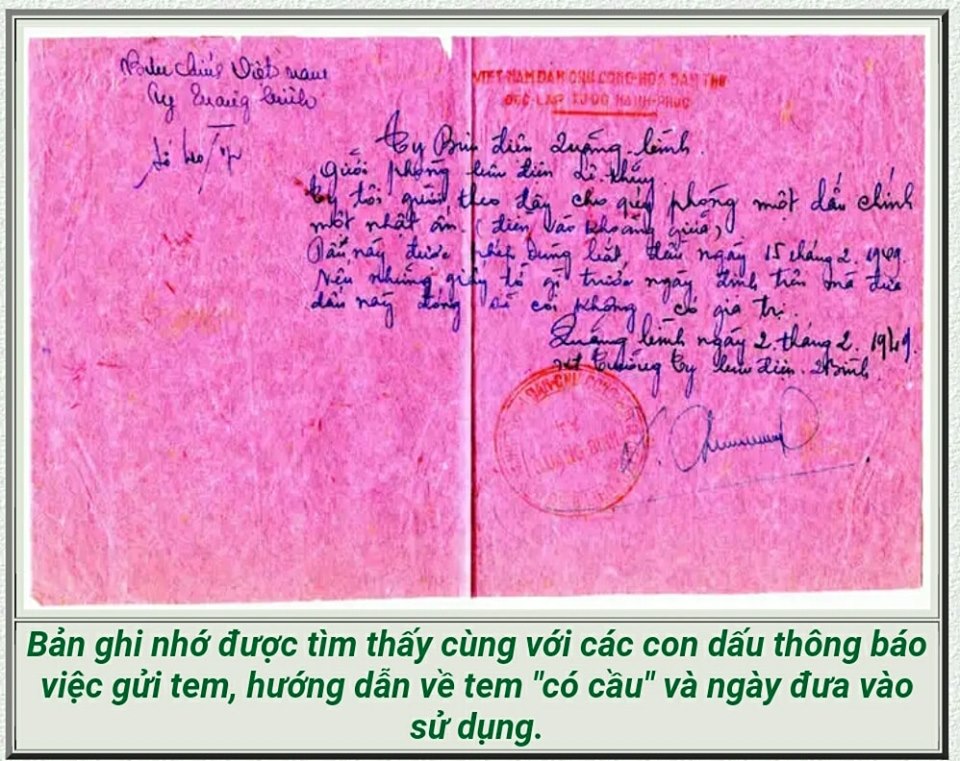 Bưu chính Việt nam
Ty Quảng Bình
Số
VIỆT-NAM DÂN CHỦ CỘNG-HÒA DÂN THỨ
ĐỘC-LẬP TỰ-DO HẠNH-PHÚC
Ty Bưu điện Quảng-bình
Gưỏi phòng bưu điện
Ty tôi gưỏi theo đây cho quý phòng một dấu chính
một nhật ấn (điền vào khoảng giữa)
Dấu này được phép dùng bắt đầu ngày 15 tháng 2. 1949.
Nếu những giấy tờ gì trước ngày định trên mà đưa
dấu này đóng sẽ coi không có giá trị.
Quảng bình ngày 2. tháng 2. 1949.
Trưởng Ty bưu điện. QBình
TY
QUẢNG BÌNH
Bản ghi nhớ được tìm thấy cùng với các con dấu thông báo
việc gửi tem, hướng dẫn về tem "có cầu" và ngày đưa vào
sử dụng.